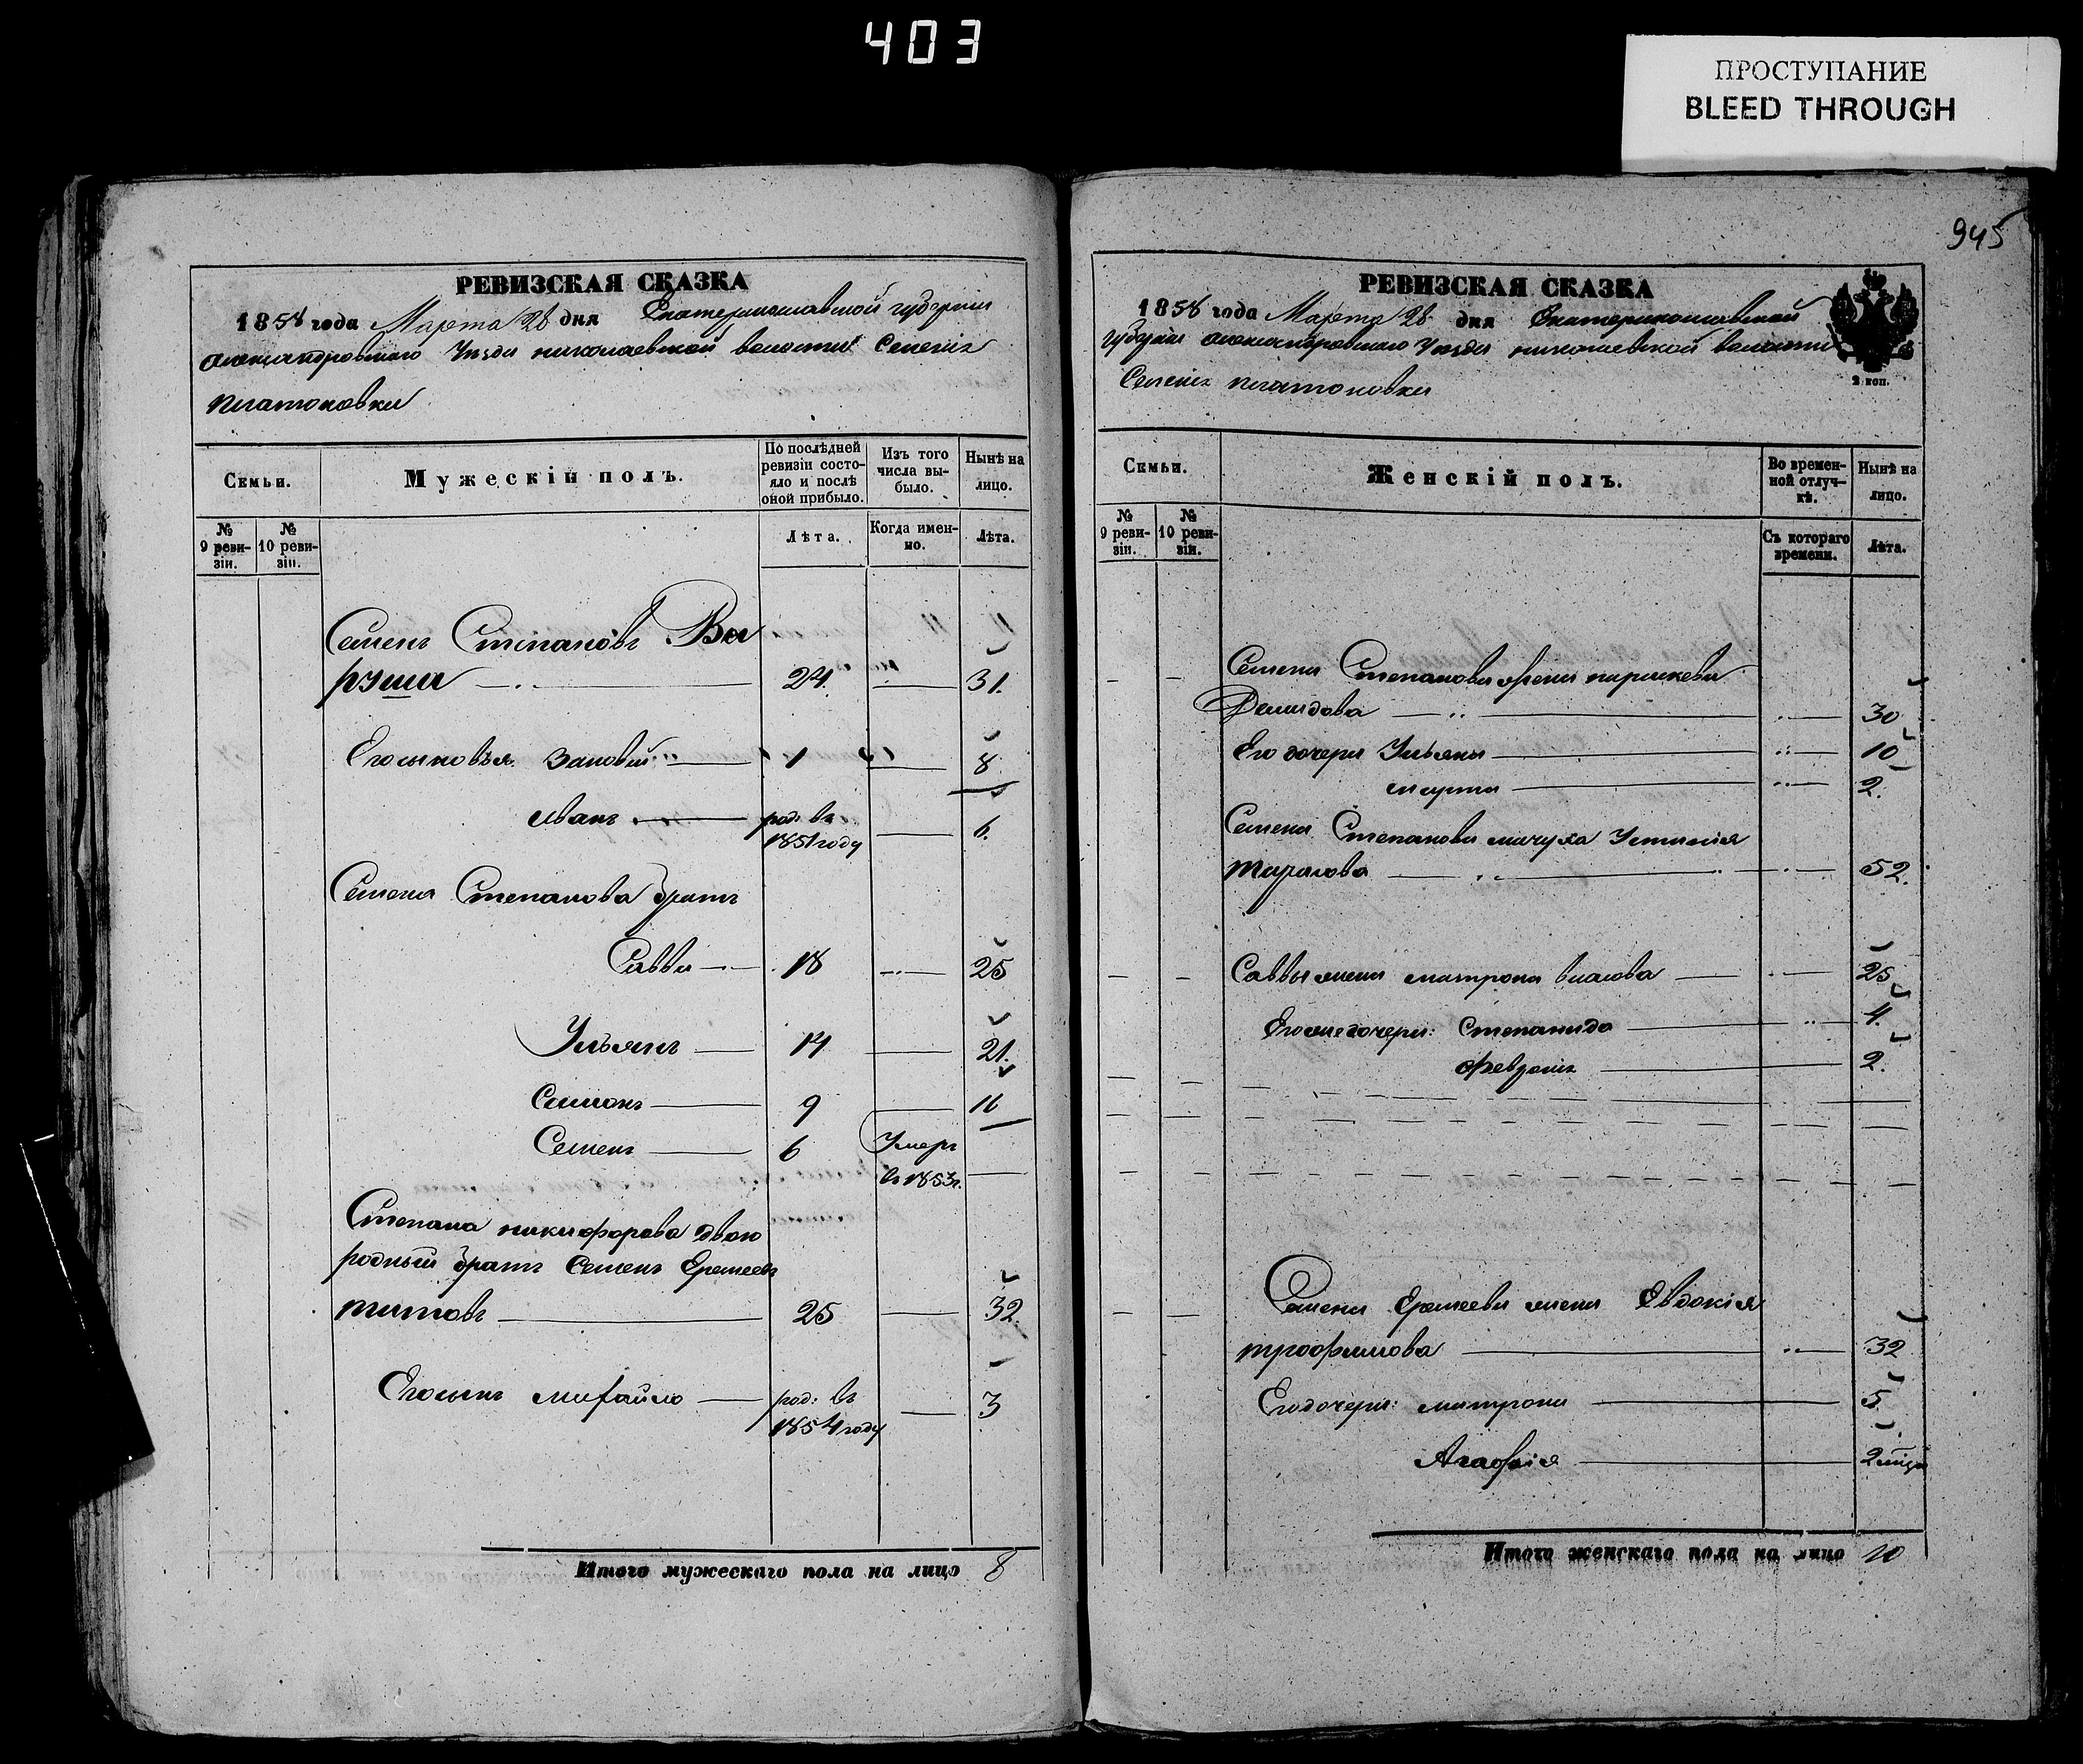 403
ПРОСТУПАНИЕ
BLEED THROUGH
945
РЕВИЗСКАЯ СКАЗКА
1858 года Марта 28 дня Екатеринославской губернiи
Александровскаго Уѣзда николаевской волости Селенiя
платоновки
Семьи.
Мужескiй полъ.
По послѣдней ревизiи состояло и послѣ оной прибыло.
Изъ того числа выбыло.
Нынѣ на лицо.
№ 9 ревизiи.
№ 10 ревизiи.
Лѣта.
Когда именно.
Лѣта.
Семенъ Степановъ Ве
рэша 24. 31.
Его сыновья Зановiй 1 8
Иванъ род: въ 1851 году 6.
Семена Степанова братъ
Савва 18 25
Ульянъ 14 21.
Симонъ 9 16
Семенъ 6 Умеръ въ 1853г.
Степана никифорова двою
родный братъ Семенъ Еремеевъ
титовъ 25 32.
Его сынъ михайло род: въ 1854 году 3
Итого мужескаго пола на лицо 8
РЕВИЗСКАЯ СКАЗКА
2 коп.
1858 года Марта 28 дня Екатеринославской
губернiи Александровскаго Уѣзда николаевской волости
Селенiя платоновки
Семьи.
Женскiй полъ.
Во временной отлучкѣ.
Нынѣ на лицо.
№ 9 ревизiи.
№ 10 ревизiи.
Съ котораго времени.
Лѣта.
Семена Степанова жена параскева
Демидова 30
Его дочери Ульяна 10
марта 2.
Семена Степанова мачуха Устинiя
тарасова 52.
Саввы жена матрона власова 25
Его же дочери: Степанида 4.
Февронiя 2.
Семена Еремеева жена Евдокiя
трофимова 32
Его дочери: матрона 5
Агафiя 2 мѣся
Итого женскаго пола на лицо 10